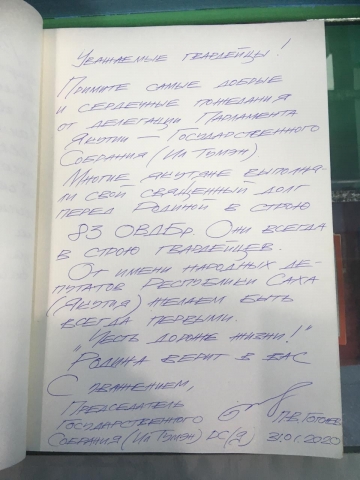 Уважаемые гвардейцы!
Примите самые добрые
и сердечные пожелания
от делегации Парламента
Якутии — Государственного
Собрания (Ил Тумэн)
Многие якутяне выполня-
ли свой священный долг
перед Родиной в строю
83 ОВДБр. Они всегда
в строю гвардейцев.
От имени народных де-
путатов Республики Саха
(Якутия) желаем быть
всегда первыми.
„Честь дороже жизни!"
Родина верит в вас
С уважением,
Председатель
Государственного
Собрания (Ил Тумэн) РС(Я)
П.В. Гоголев
31.01.2020